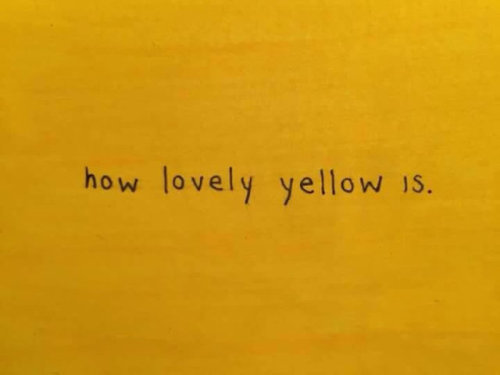 how lovely yellow is.